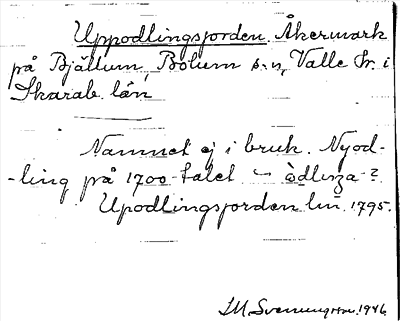 Uppodlingsjorden. Åkermark
på Bjällum, Bolum s:n, Valle Hr. i
Skarab. län
Namnet ej i bruk. Nyod-
-ling på 1700-talet
Upodlingsjorden lm. 1795.
1946.